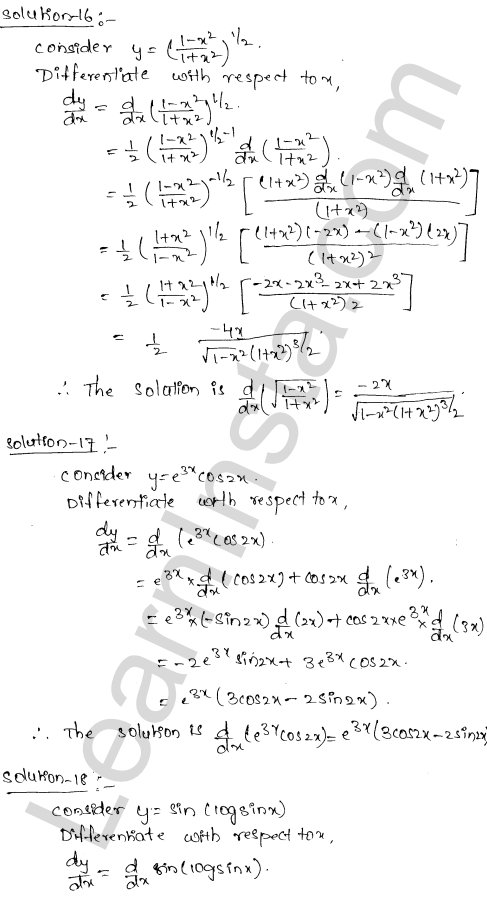 Solution-16:-
Consider y = ((1-x²)/(1+x²))^1/2.
Differentiate with respect to x,
dy/dx = d/dx ((1-x²)/(1+x²))^1/2.
= 1/2 ((1-x²)/(1+x²))^1/2-1 d/dx ((1-x²)/(1+x²)).
= 1/2 ((1-x²)/(1+x²))^-1/2 [((1+x²) d/dx (1-x²) d/dx (1+x²))/(1+x²)]
= 1/2 ((1+x²)/(1-x²))^1/2 [((1+x²)(-2x) - (1-x²)(2x))/(1+x²)2]
= 1/2 ((1+x²)/(1-x²))^1/2 [(-2x-2x³-2x+2x³)/(1+x²)2]
= 1/2 -4x/(√1-x² (1+x²)^3/2)
∴ The solution is d/dx (√(1-x²)/(1+x²)) = -2x/(√1-x² (1+x²)^3/2).
Solution-17:-
Consider y=e^3x cos2x.
Differentiate with respect to x,
dy/dx = d/dx (e^3x cos2x).
= e^3x × d/dx (cos2x) + cos2x d/dx (e^3x).
= e^3x × (-sin2x) d/dx (2x) + cos2x × e^3x × d/dx (3x)
= -2e^3x sin2x + 3e^3x cos2x.
= e^3x (3cos2x - 2sin2x).
∴ The solution is d/dx (e^3x cos2x) = e^3x (3cos2x - 2sin2x)
Solution-18:-
Consider y= sin (logsinx)
Differentiate with respect to x,
dy/dx = d/dx sin(logsinx).
LearnInsta.com